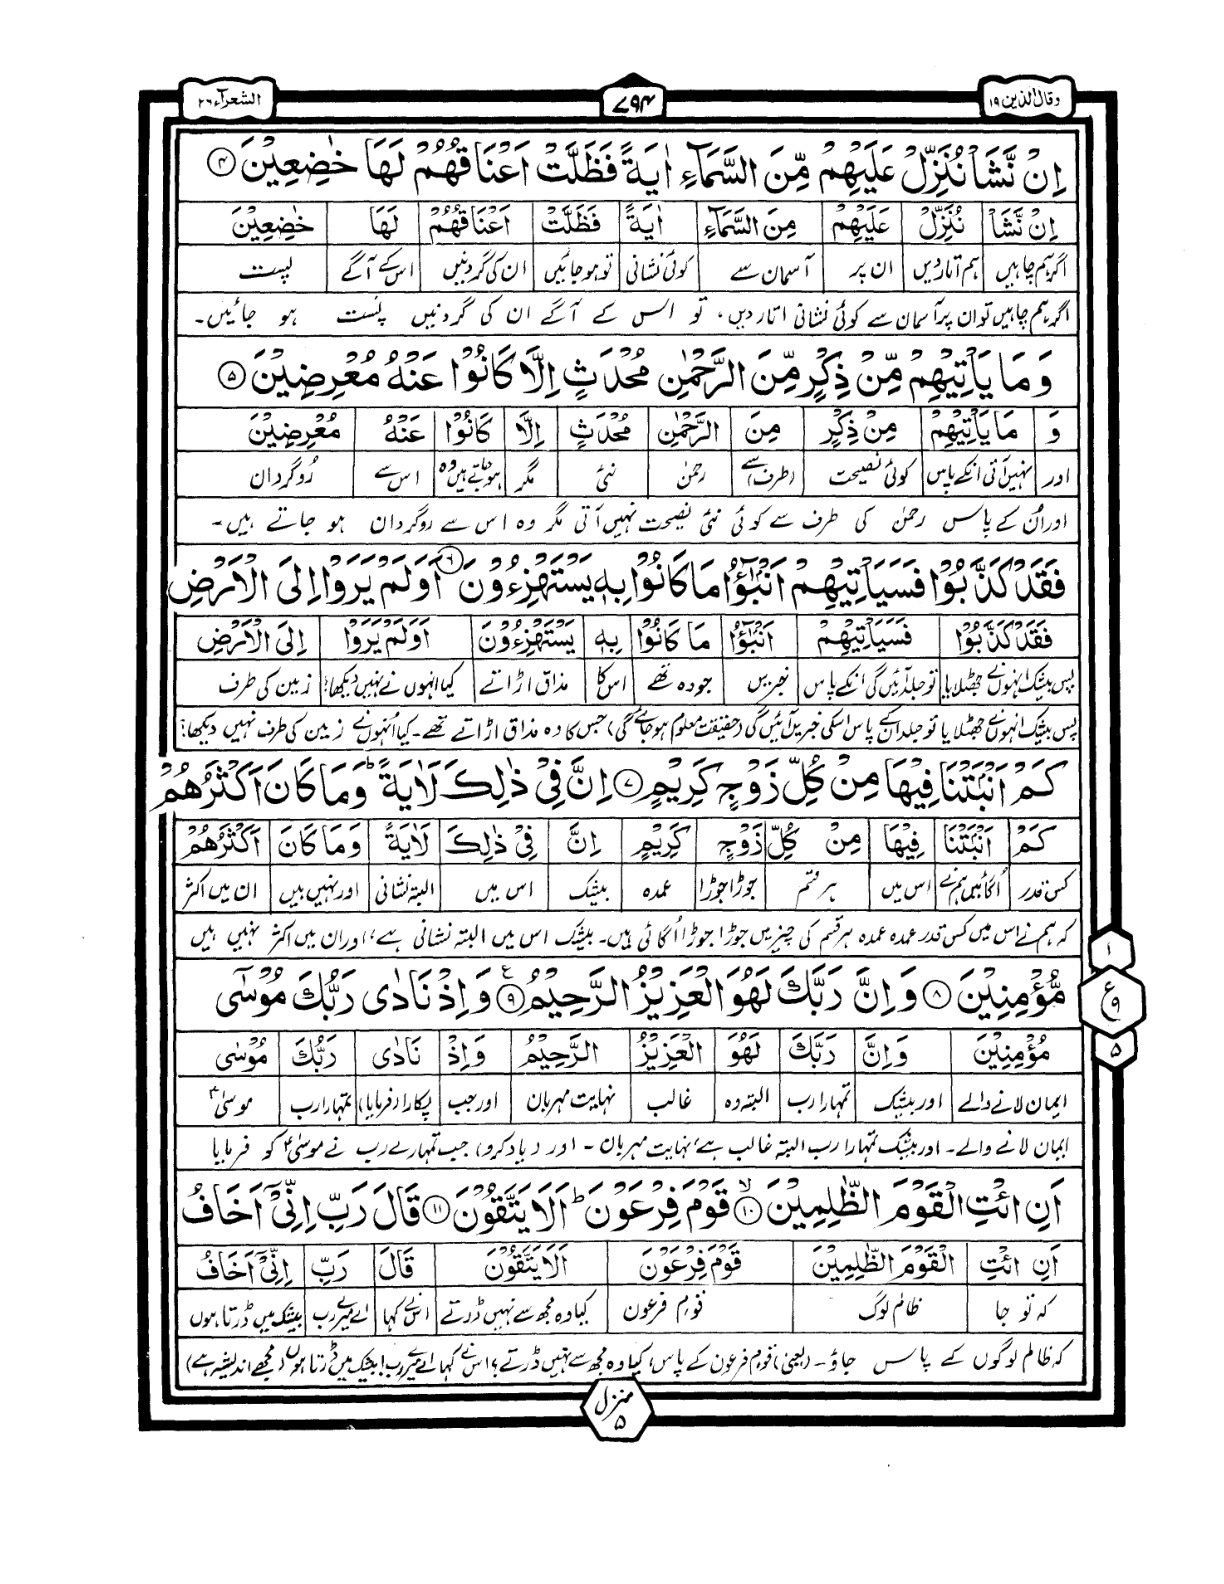 وقال الذين ۱۹
۷۹۴
الشعرآء ۲۶
اِنْ نَّشَاْ نُنَزِّلْ عَلَيْهِمْ مِّنَ السَّمَآءِ اٰيَةً فَظَلَّتْ اَعْنَاقُهُمْ لَهَا خٰضِعِيْنَ ۴
اِنْ نَّشَاْ نُنَزِّلْ عَلَيْهِمْ مِنَ السَّمَآءِ اٰيَةً فَظَلَّتْ اَعْنَاقُهُمْ لَهَا خٰضِعِيْنَ
اگر ہم چاہیں ہم اتار دیں ان پر آسمان سے کوئی نشانی تو ہو جائیں ان کی گردنیں اس کے آگے پست
اگر ہم چاہیں تو ان پر آسمان سے کوئی نشانی اتار دیں، تو اس کے آگے ان کی گردنیں پست ہو جائیں۔
وَ مَا يَاْتِيْهِمْ مِّنْ ذِكْرٍ مِّنَ الرَّحْمٰنِ مُحْدَثٍ اِلَّا كَانُوْا عَنْهُ مُعْرِضِيْنَ ۵
وَ مَا يَاْتِيْهِمْ مِنْ ذِكْرٍ مِنَ الرَّحْمٰنِ مُحْدَثٍ اِلَّا كَانُوْا عَنْهُ مُعْرِضِيْنَ
اور نہیں آتی انکے پاس کوئی نصیحت (طرف) سے رحمٰن نئی مگر ہو جاتے ہیں وہ اس سے روگردان
اور اُن کے پاس رحمٰن کی طرف سے کوئی نئی نصیحت نہیں آتی مگر وہ اس سے روگردان ہو جاتے ہیں۔
فَقَدْ كَذَّبُوْا فَسَيَاْتِيْهِمْ اَنْۢبٰٓؤُا مَا كَانُوْا بِهٖ يَسْتَهْزِءُوْنَ ۶ اَوَلَمْ يَرَوْا اِلَى الْاَرْضِ
فَقَدْ كَذَّبُوْا فَسَيَاْتِيْهِمْ اَنْۢبٰٓؤُا مَا كَانُوْا بِهٖ يَسْتَهْزِءُوْنَ اَوَلَمْ يَرَوْا اِلَى الْاَرْضِ
پس بیشک انہوں نے جھٹلایا تو جلد آئیں گی انکے پاس خبریں جو وہ تھے اس کا مذاق اڑاتے کیا انہوں نے نہیں دیکھا؟ زمین کی طرف
پس بیشک انہوں نے جھٹلایا تو جلد ان کے پاس اسکی خبریں آئیں گی (حقیقت معلوم ہو جائے گی) جس کا وہ مذاق اڑاتے تھے۔ کیا اُنہوں نے زمین کی طرف نہیں دیکھا؟
كَمْ اَنْۢبَتْنَا فِيْهَا مِنْ كُلِّ زَوْجٍ كَرِيْمٍ ۷ اِنَّ فِيْ ذٰلِكَ لَاٰيَةً ؕ وَمَا كَانَ اَكْثَرُهُمْ
كَمْ اَنْۢبَتْنَا فِيْهَا مِنْ كُلِّ زَوْجٍ كَرِيْمٍ اِنَّ فِيْ ذٰلِكَ لَاٰيَةً وَمَا كَانَ اَكْثَرُهُمْ
کس قدر اُگائیں ہم نے اس میں ہر قسم جوڑا جوڑا عمدہ بیشک اس میں البتہ نشانی اور نہیں ہیں ان میں اکثر
کہ ہم نے اس میں کس قدر عمدہ عمدہ ہر قسم کی چیزیں جوڑا جوڑا اُگائی ہیں۔ بیشک اس میں البتہ نشانی ہے، اور ان میں اکثر نہیں ہیں
مُّؤْمِنِيْنَ ۸ وَاِنَّ رَبَّكَ لَهُوَ الْعَزِيْزُ الرَّحِيْمُ ۹ ع وَاِذْ نَادٰى رَبُّكَ مُوْسٰٓى
۱ ع ۹ ۵
مُؤْمِنِيْنَ وَاِنَّ رَبَّكَ لَهُوَ الْعَزِيْزُ الرَّحِيْمُ وَاِذْ نَادٰى رَبُّكَ مُوْسٰى
ایمان لانے والے اور بیشک تمہارا رب البتہ وہ غالب نہایت مہربان اور جب پکارا (فرمایا) تمہارا رب موسٰیؑ
ایمان لانے والے۔ اور بیشک تمہارا رب البتہ غالب ہے، نہایت مہربان۔ اور (یاد کرو) جب تمہارے رب نے موسٰیؑ کو فرمایا
اَنِ ائْتِ الْقَوْمَ الظّٰلِمِيْنَ ۱۰ ۙ قَوْمَ فِرْعَوْنَ ؕ اَلَا يَتَّقُوْنَ ۱۱ قَالَ رَبِّ اِنِّىْٓ اَخَافُ
اَنِ ائْتِ الْقَوْمَ الظّٰلِمِيْنَ قَوْمَ فِرْعَوْنَ اَلَا يَتَّقُوْنَ قَالَ رَبِّ اِنِّىْٓ اَخَافُ
کہ تو جا ظالم لوگ قوم فرعون کیا وہ مجھ سے نہیں ڈرتے اس نے کہا اے میرے رب بیشک میں ڈرتا ہوں
کہ ظالم لوگوں کے پاس جاؤ۔ (یعنی) قوم فرعون کے پاس، کیا وہ مجھ سے نہیں ڈرتے؟ اس نے کہا اے میرے رب! بیشک میں ڈرتا ہوں (مجھے اندیشہ ہے)
منزل ۵